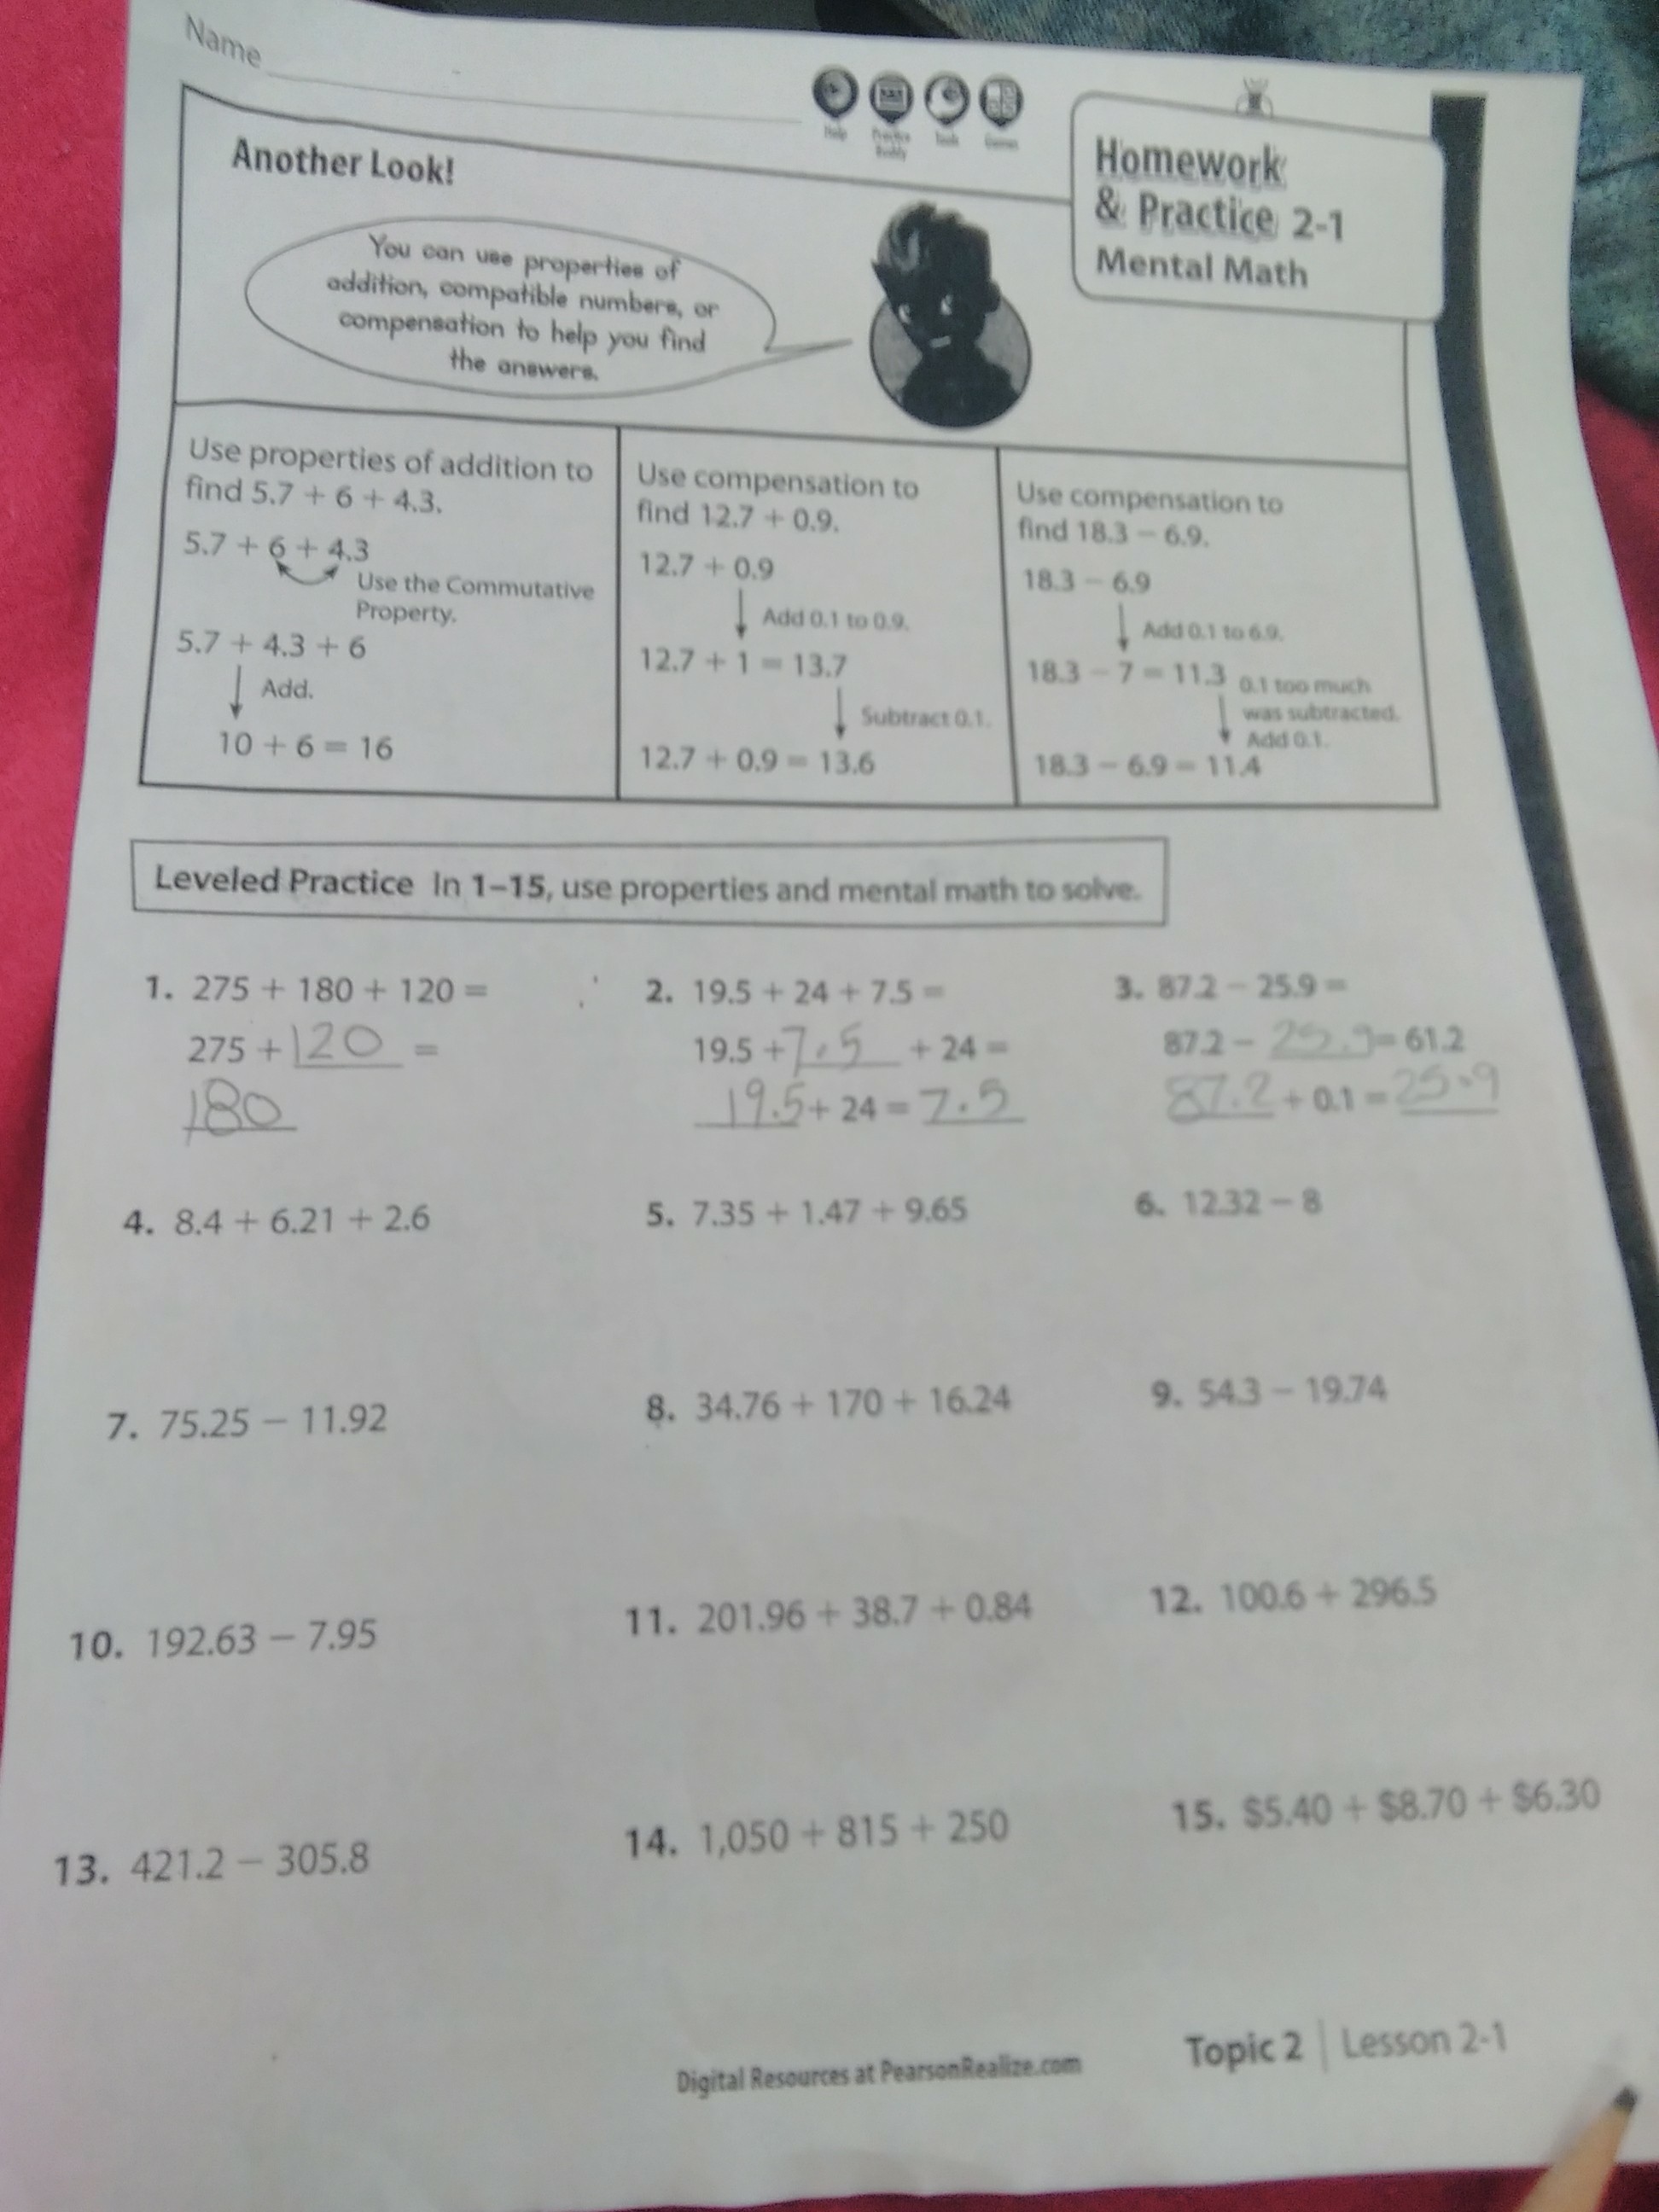 Name
Help
Practice Buddy
Tools
Games
Another Look!
Homework
& Practice 2-1
Mental Math
You can use properties of
addition, compatible numbers, or
compensation to help you find
the answers.
Use properties of addition to
find 5.7 + 6 + 4.3.
5.7 + 6 + 4.3
Use the Commutative
Property.
5.7 + 4.3 + 6
Add.
10 + 6 = 16
Use compensation to
find 12.7 + 0.9.
12.7 + 0.9
Add 0.1 to 0.9.
12.7 + 1 = 13.7
Subtract 0.1.
12.7 + 0.9 = 13.6
Use compensation to
find 18.3 − 6.9.
18.3 − 6.9
Add 0.1 to 6.9.
18.3 − 7 = 11.3 0.1 too much
was subtracted.
Add 0.1.
18.3 − 6.9 = 11.4
Leveled Practice In 1–15, use properties and mental math to solve.
1. 275 + 180 + 120 =
275 + 120 =
180
2. 19.5 + 24 + 7.5 =
19.5 + 7.5 + 24 =
19.5 + 24 = 7.5
3. 87.2 − 25.9 =
87.2 − 25.9 = 61.2
87.2 + 0.1 = 25.9
4. 8.4 + 6.21 + 2.6
5. 7.35 + 1.47 + 9.65
6. 12.32 − 8
7. 75.25 − 11.92
8. 34.76 + 170 + 16.24
9. 54.3 − 19.74
10. 192.63 − 7.95
11. 201.96 + 38.7 + 0.84
12. 100.6 + 296.5
13. 421.2 − 305.8
14. 1,050 + 815 + 250
15. $5.40 + $8.70 + $6.30
Digital Resources at PearsonRealize.com
Topic 2 | Lesson 2-1